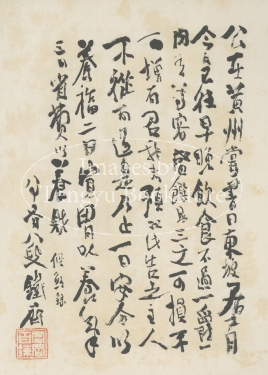 公在黄州嘗書曰東坡居士自
今日已往早晚飲食不過一爵一
肉有尊客盛饌則三之可損不
可增有召我者預以此告之主人
不從而過是乃止一曰安分以
養福二曰寛胃以養氣
三曰省費以養財
八十有八叟鐵斎
Images by